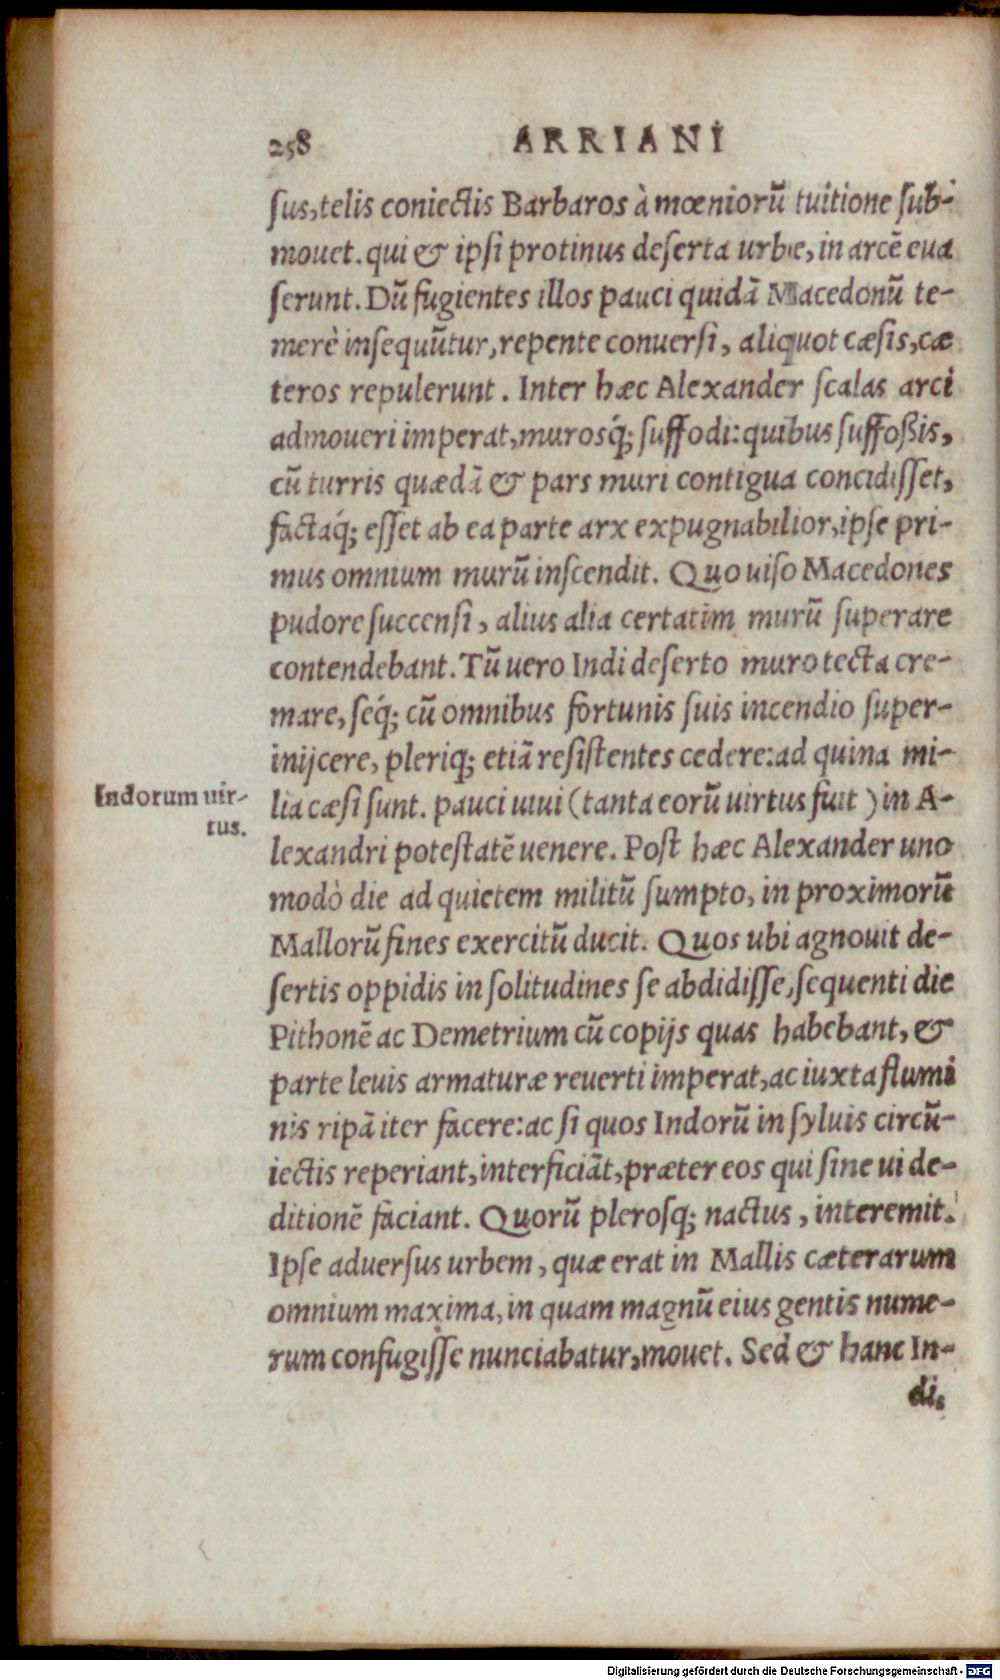 258 ARRIANI
sus, telis coniectis Barbaros à mœniorũ tuitione sub-
mouet. qui & ipsi protinus deserta urbe, in arcẽ eua
serunt. Dũ fugientes illos pauci quidã Macedonũ te-
merè insequũtur, repente conuersi, aliquot cæsis, cæ
teros repulerunt. Inter hæc Alexander scalas arci
admoueri imperat, murosq́; suffodi: quibus suffoßis,
cũ turris quædã & pars muri contigua concidisset,
factaq́; esset ab ea parte arx expugnabilior, ipse pri-
mus omnium murũ inscendit. Quo uiso Macedones
pudore succensi, alius alia certatim murũ superare
contendebant. Tũ uero Indi deserto muro tecta cre-
mare, seq́; cũ omnibus fortunis suis incendio super-
inijcere, pleriq; etiã resistentes cedere: ad quina mi-
Indorum uir-
tus.
lia cæsi sunt. pauci uiui (tanta eorũ uirtus fuit) in A-
lexandri potestatẽ uenere. Post hæc Alexander uno
modò die ad quietem militũ sumpto, in proximorũ
Mallorũ fines exercitũ ducit. Quos ubi agnouit de-
sertis oppidis in solitudines se abdidisse, sequenti die
Pithonẽ ac Demetrium cũ copijs quas habebant, &
parte leuis armaturæ reuerti imperat, ac iuxta flumi
nis ripã iter facere: ac si quos Indorũ in syluis circũ-
iectis reperiant, interficiãt, præter eos qui sine ui de-
ditionẽ faciant. Quorũ plerosq; nactus, interemit.
Ipse aduersus urbem, quæ erat in Mallis cæterarum
omnium maxima, in quam magnũ eius gentis nume-
rum confugisse nunciabatur, mouet. Sed & hanc In-
di,
Digitalisierung gefördert durch die Deutsche Forschungsgemeinschaft - DFG